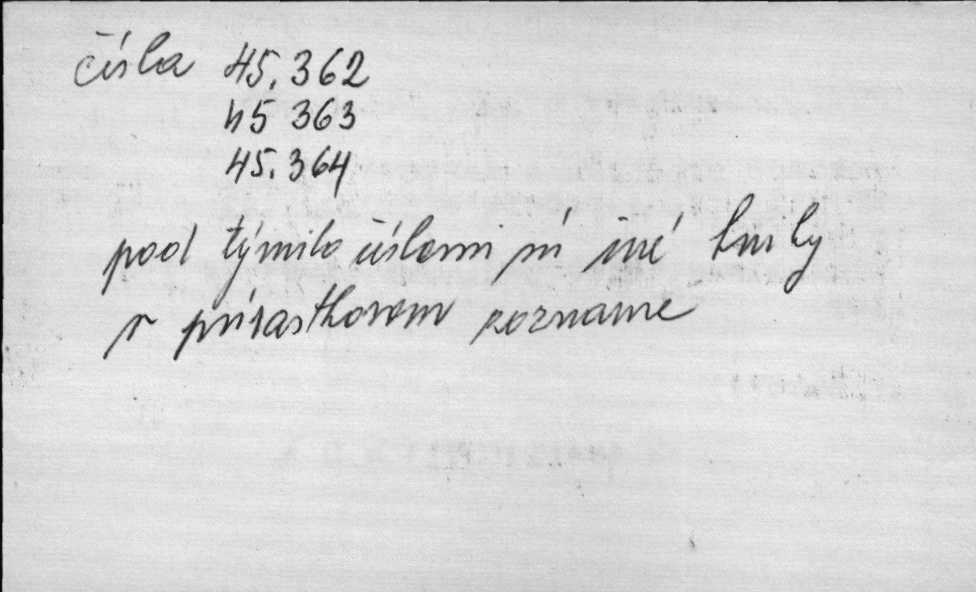 čísla 45.362
45 363
45.364
pod týmito číslami sú iné knihy
v prírastkovom zozname